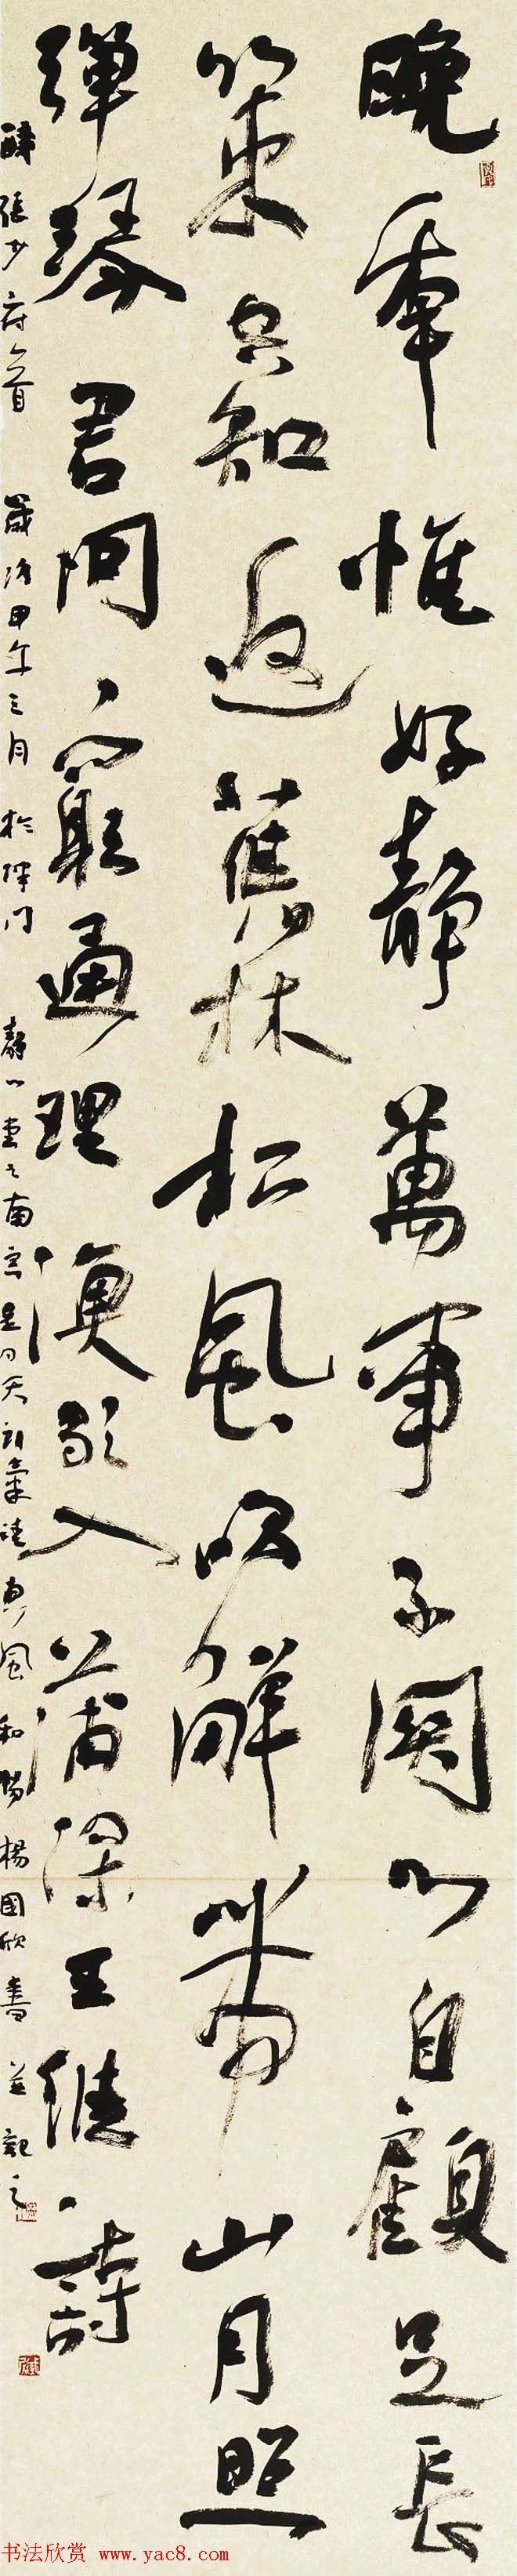 晚年惟好靜萬事不關心自顧足長
策空知返舊林松風吹解帶山月照
彈琴君問窮通理漁歌入蒲深王維詩
酬張少府首 歲次甲午三月於津門 靜心堂之南窗是日天朗氣清惠風和暢楊國欣書並記之
书法欣赏 www.yac8.com